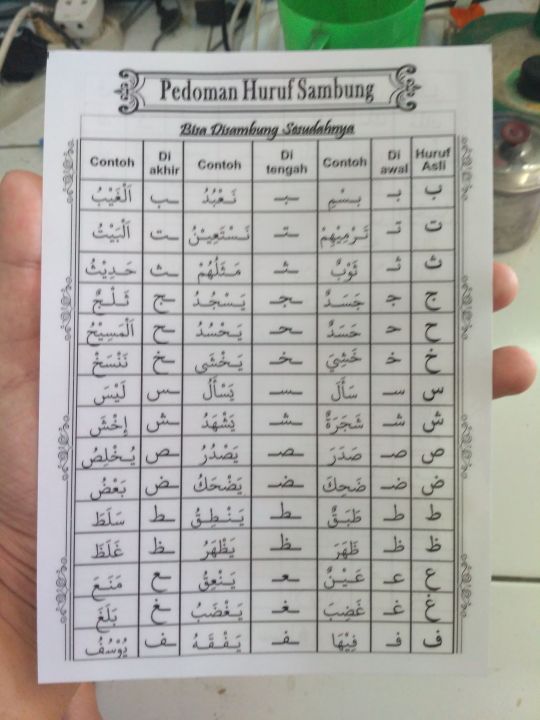 Pedoman Huruf Sambung
Bisa Disambung Sesudahnya
Contoh Di akhir Contoh Di tengah Contoh Di awal Huruf Asli
ب بـ بِسْمِ ـبـ نَعْبُدُ ـب اَلْغَيْبُ
ت تـ تَرْمِيْهِمْ ـتـ نَسْتَعِيْنُ ـت اَلْبَيْتُ
ث ثـ ثَوْبٌ ـثـ مَثَلُهُمْ ـث حَدِيْثُ
ج جـ جَسَدٌ ـجـ يَسْجُدُ ـج ثَلْجٌ
ح حـ حَسَدٌ ـحـ يَحْسُدُ ـح اَلْمَسِيْحُ
خ خـ خَشِيَ ـخـ يَخْشَى ـخ نَنْسَخْ
س سـ سَأَلَ ـسـ يَسْأَلُ ـس لَيْسَ
ش شـ شَجَرَةٌ ـشـ يَشْهَدُ ـش اِخْشَ
ص صـ صَدَرَ ـصـ يَصْدُرُ ـص يُخْلِصُ
ض ضـ ضَحِكَ ـضـ يَضْحَكُ ـض بَعْضُ
ط طـ طَبَقٌ ـطـ يَنْطِقُ ـط سَلَطَ
ظ ظـ ظَهَرَ ـظـ يَظْهَرُ ـظ غَلَظَ
ع عـ عَيْنٌ ـعـ يَنْعِقُ ـع مَنَعَ
غ غـ غَضِبَ ـغـ يَغْضَبُ ـغ بَلَغَ
ف فـ فِيْهَا ـفـ يَفْقَهُ ـف يُوْسُفُ